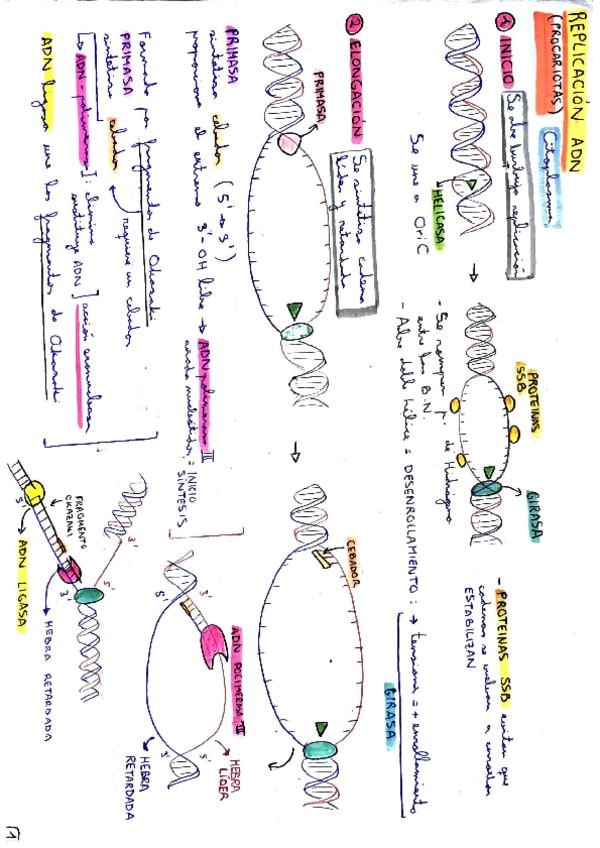 REPLICACIÓN ADN
(PROCARIOTAS) Citoplasma
① INICIO Se abre burbuja replicación
HELICASA
Se une a OriC
PROTEINAS
SSB
GIRASA
- Se rompen p. de Hidrógeno
entre las B.N.
- Abre doble hélice = DESENROLLAMIENTO : → tensiones = + enrollamiento
GIRASA
- PROTEINAS SSB evitan que
cadenas se vuelvan a enrollar
ESTABILIZAN
② ELONGACIÓN Se sintetiza cadena
líder y retardada
PRIMASA
CEBADOR
PRIMASA
sintetiza cebador (5' → 3')
proporciona el extremo 3'-OH libre → ADN polimerasa III
añade nucleótidos = INICIO
SÍNTESIS
ADN POLIMERASA III
5'
3'
5'
HEBRA
LÍDER
HEBRA
RETARDADA
Formada por fragmentos de Okazaki
PRIMASA
sintetiza cebador requiere un cebador
↳ ADN-polimerasa I : elimina
sustituye ADN ] acción exonucleasa
ADN ligasa une los fragmentos de Okazaki
3'
5'
3'
5'
FRAGMENTO
OKAZAKI
HEBRA RETARDADA
ADN LIGASA
1